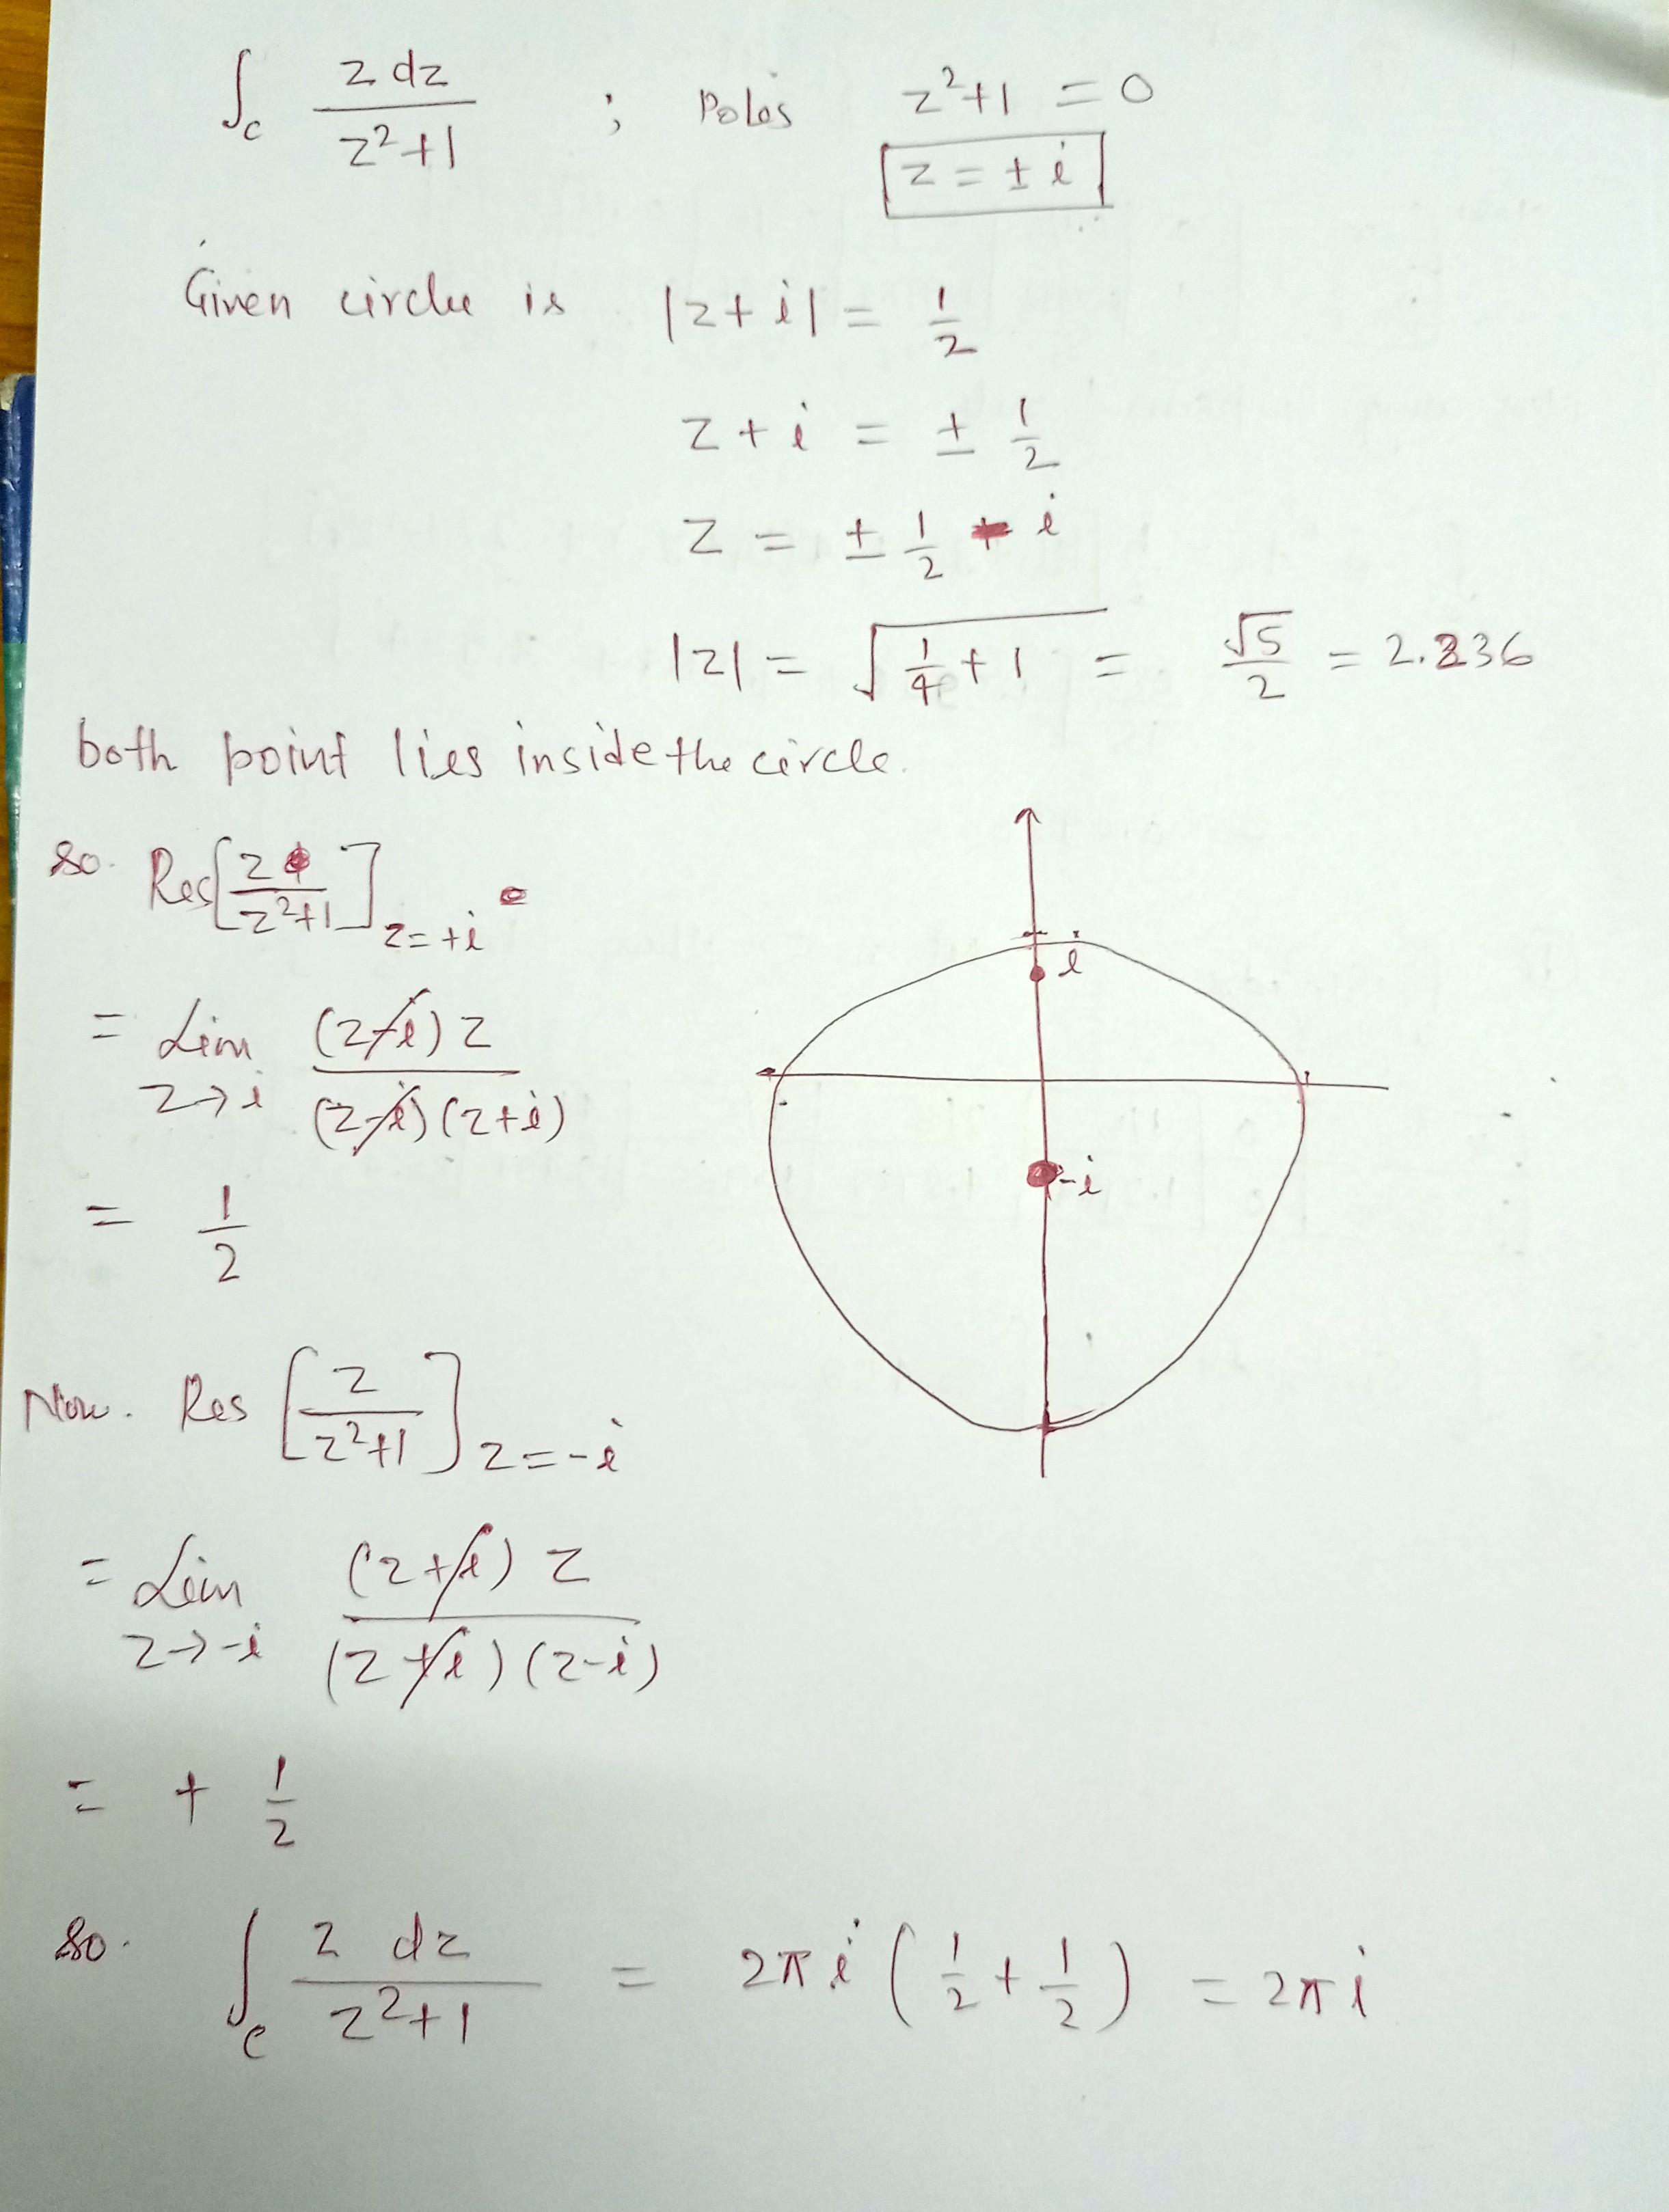 ∫_c z dz / z²+1 ; Poles z²+1 = 0
z = ± i
Given circle is |z+i| = 1/2
z + i = ± 1/2
z = ± 1/2 - i
|z| = √(1/4 + 1) = √5/2 = 2.236
both point lies inside the circle.
so. Res[z / z²+1]_z=+i
= Lim z→i (z-i) z / (z-i)(z+i)
= 1/2
i
-i
Now. Res [z / z²+1]_z=-i
= Lim z→-i (z+i) z / (z+i)(z-i)
= + 1/2
so. ∫_c z dz / z²+1 = 2πi (1/2 + 1/2) = 2πi